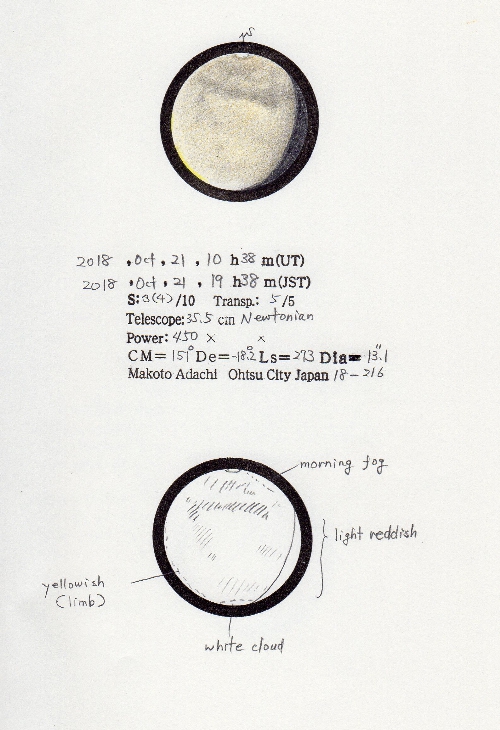 2018 , Oct , 21 , 10 h 38 m(UT)
2018 , Oct , 21 , 19 h 38 m(JST)
S: 3(4) /10 Transp.: 5 /5
Telescope: 35.5 cm Newtonian
Power: 450 × ×
CM= 151° De= -18.2 Ls= 273 Dia= 13".1
Makoto Adachi Ohtsu City Japan 18-216
morning fog
light reddish
yellowish
(limb)
white cloud